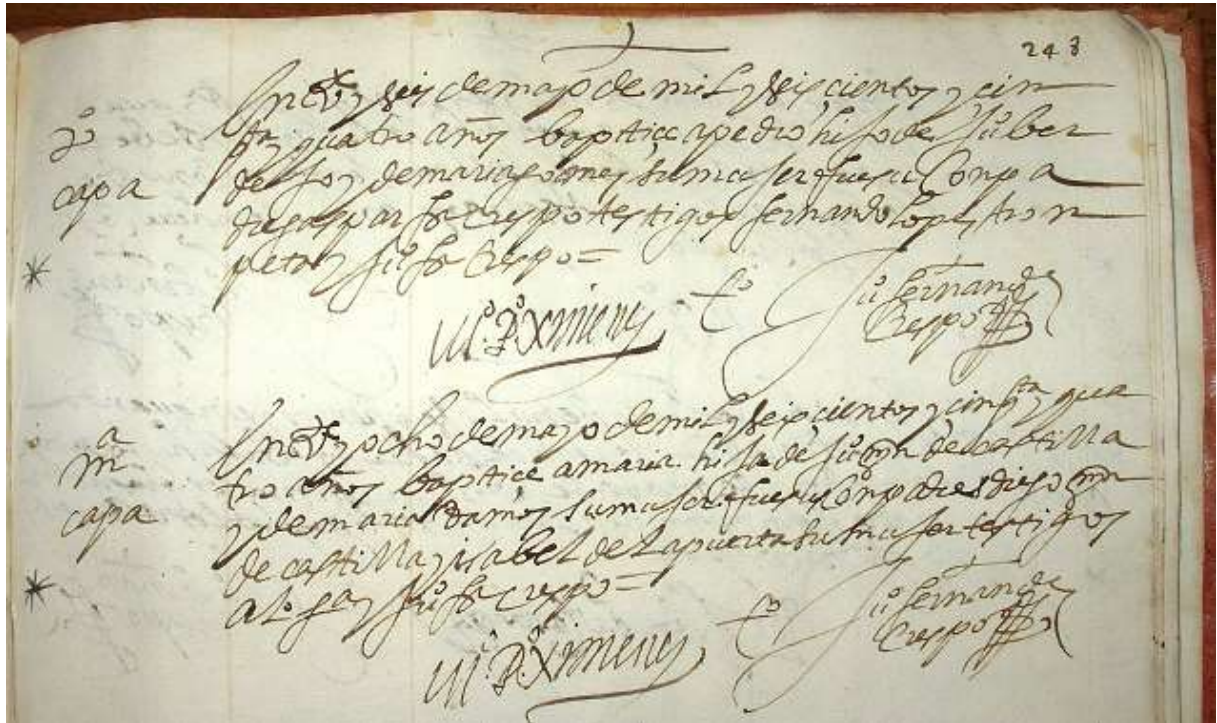 248
En veyte y seis de mayo de mil y seiscientos y cin
ta y quatro años baptice a pedro hijo de Juº ber
de jo y de maria gomes su mujer fue su Conpa
dre gaspar frz crespo testigos fernando lopes, tron
peta y Juº frz Crespo =
pº
capa
Mº. Pº Ximenes
tº
Juº fernandz
Crespo
En vte y ocho de mayo de mil y seiscientos y cinqta y qua
tro años baptice a maria hija de Juº mrn de castilla
y de maria ramos su mujer fueron Conpadres diego mrn
de castilla y isabel de la puerta su mujer testigos
alº ga y Juº frz crespo =
mª
capa
Mº. Pº Ximenes
tº
Juº fernandz
Crespo